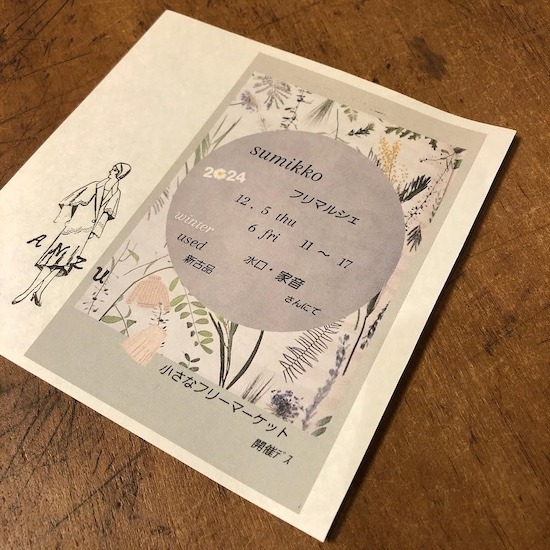 sumikko
2024
フリマルシェ
12. 5 thu
6 fri 11〜17
winter
used
新古品
水口・家音
さんにて
小さなフリーマーケット
開催デス